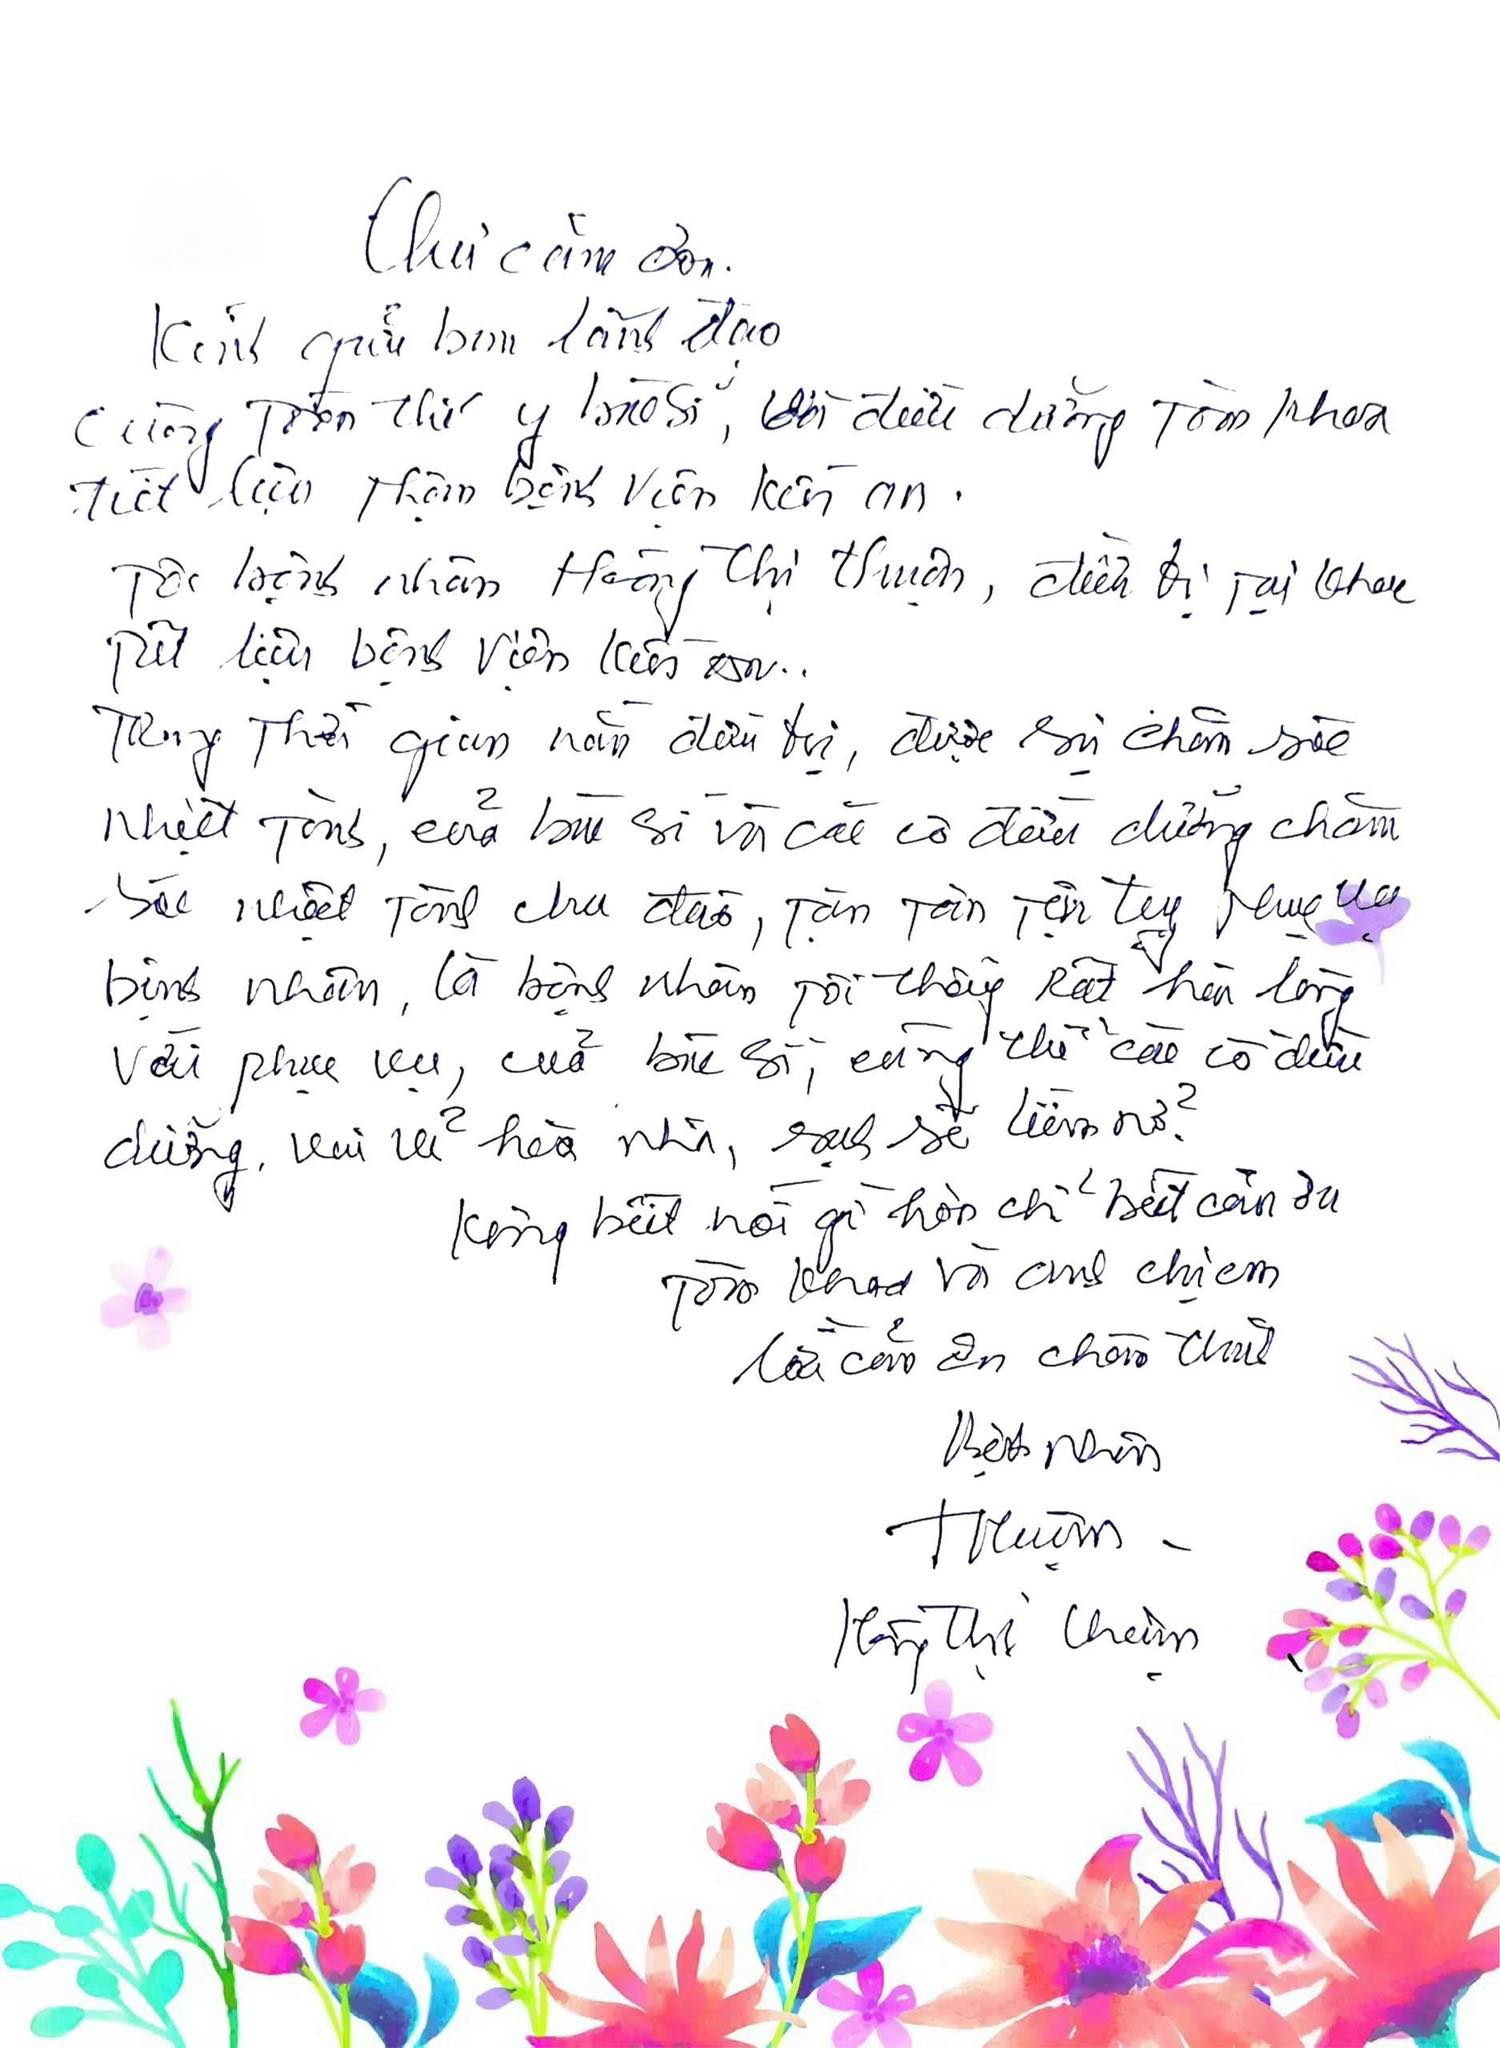 Thư cảm ơn.
Kính gửi ban lãnh đạo
Cùng toàn thể y bác sĩ, với điều dưỡng toàn khoa
tiết liệu thận bệnh viện kiến an.
Tôi bệnh nhân Hoàng Thị Thuận, điều trị tại khoa
tiết liệu bệnh viện kiến an..
Trong thời gian nằm điều trị, được sự chăm sóc
nhiệt tình, của bác sĩ và các cô điều dưỡng chăm
sóc nhiệt tình chu đáo, tận tình tận tuỵ phục vụ
bệnh nhân, là bệnh nhân tôi thấy rất hài lòng
với phục vụ, của bác sĩ, cũng như các cô điều
dưỡng, vui vẻ hoà nhã, sạch sẽ niềm nở.
Không biết nói gì hơn chỉ biết cảm ơn
toàn khoa và anh chị em
lời cảm ơn chân thành
Bệnh nhân
Thuận
Hoàng Thị Thuận